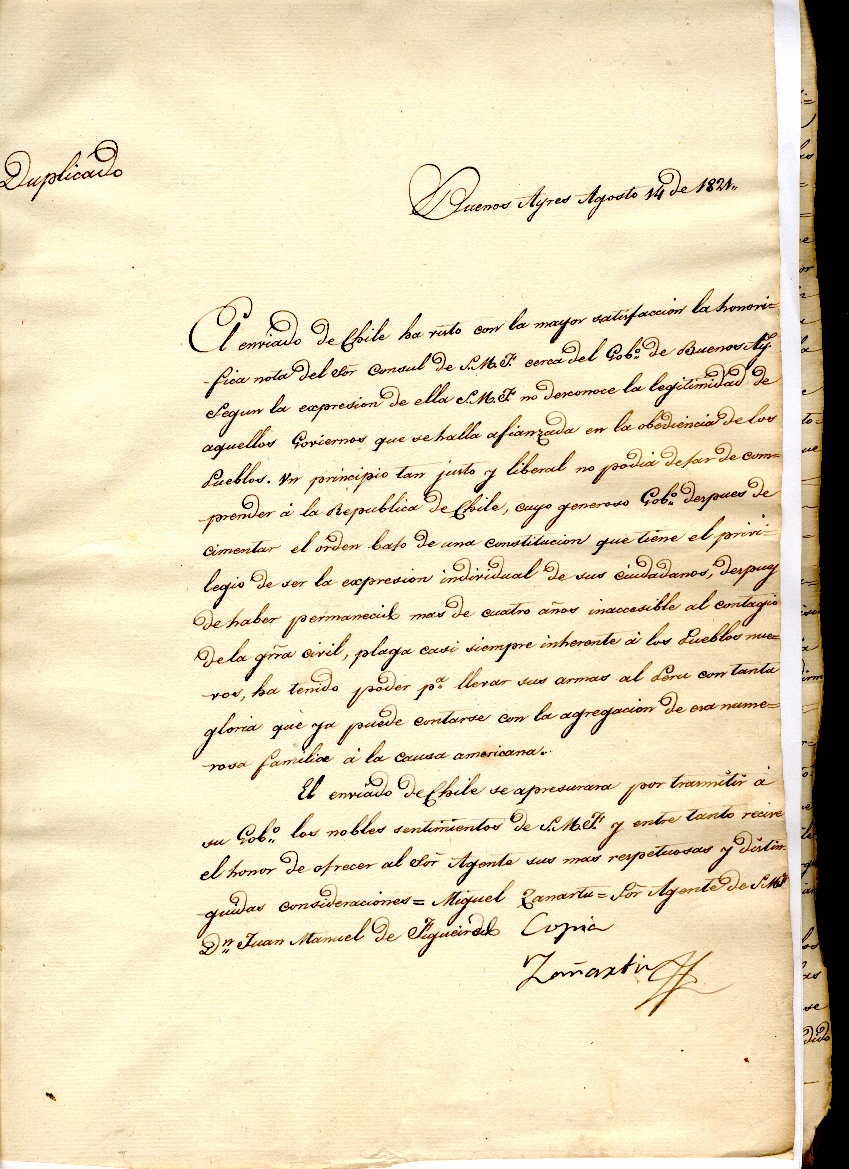 Duplicado
Buenos Ayres Agosto 14 de 1821„
El enviado de Chile ha visto con la mayor satisfaccion la honori=
-fica nota del Sor Consul de S.M.F. cerca del Gob.º de Buenos Ay.ˢ
Segun la expresion de ella S.M.F. no desconoce la legitimidad de
aquellos Goviernos que se halla afianzada en la obediencia de los
Pueblos. Un principio tan justo y liberal no podia dejar de com=
-prender á la Republica de Chile, cuyo generoso Gob.º despues de
cimentar el orden bajo de una constitucion que tiene el privi=
legio de ser la expresion individual de sus ciudadanos, despues
de haber permanecido mas de cuatro años inaccesible al contagio
de la grra civil, plaga casi siempre inherente á los Pueblos nue=
vos, ha tenido poder p.ª llevar sus armas al Peru con tanta
gloria que ya puede contarse con la agregacion de esa nume=
rosa familia á la causa americana.
El enviado de Chile se apresurara por trasmitir á
su Gob.º los nobles sentimientos de S.M.F. y entre tanto recive
el honor de ofrecer al Sor Agente sus mas respetuosas y distin=
guidas consideraciones = Miguel Zañartu = Sor Agente de S.M.F.
Dⁿ Juan Manuel de Figueiredo Copia
Zañartu